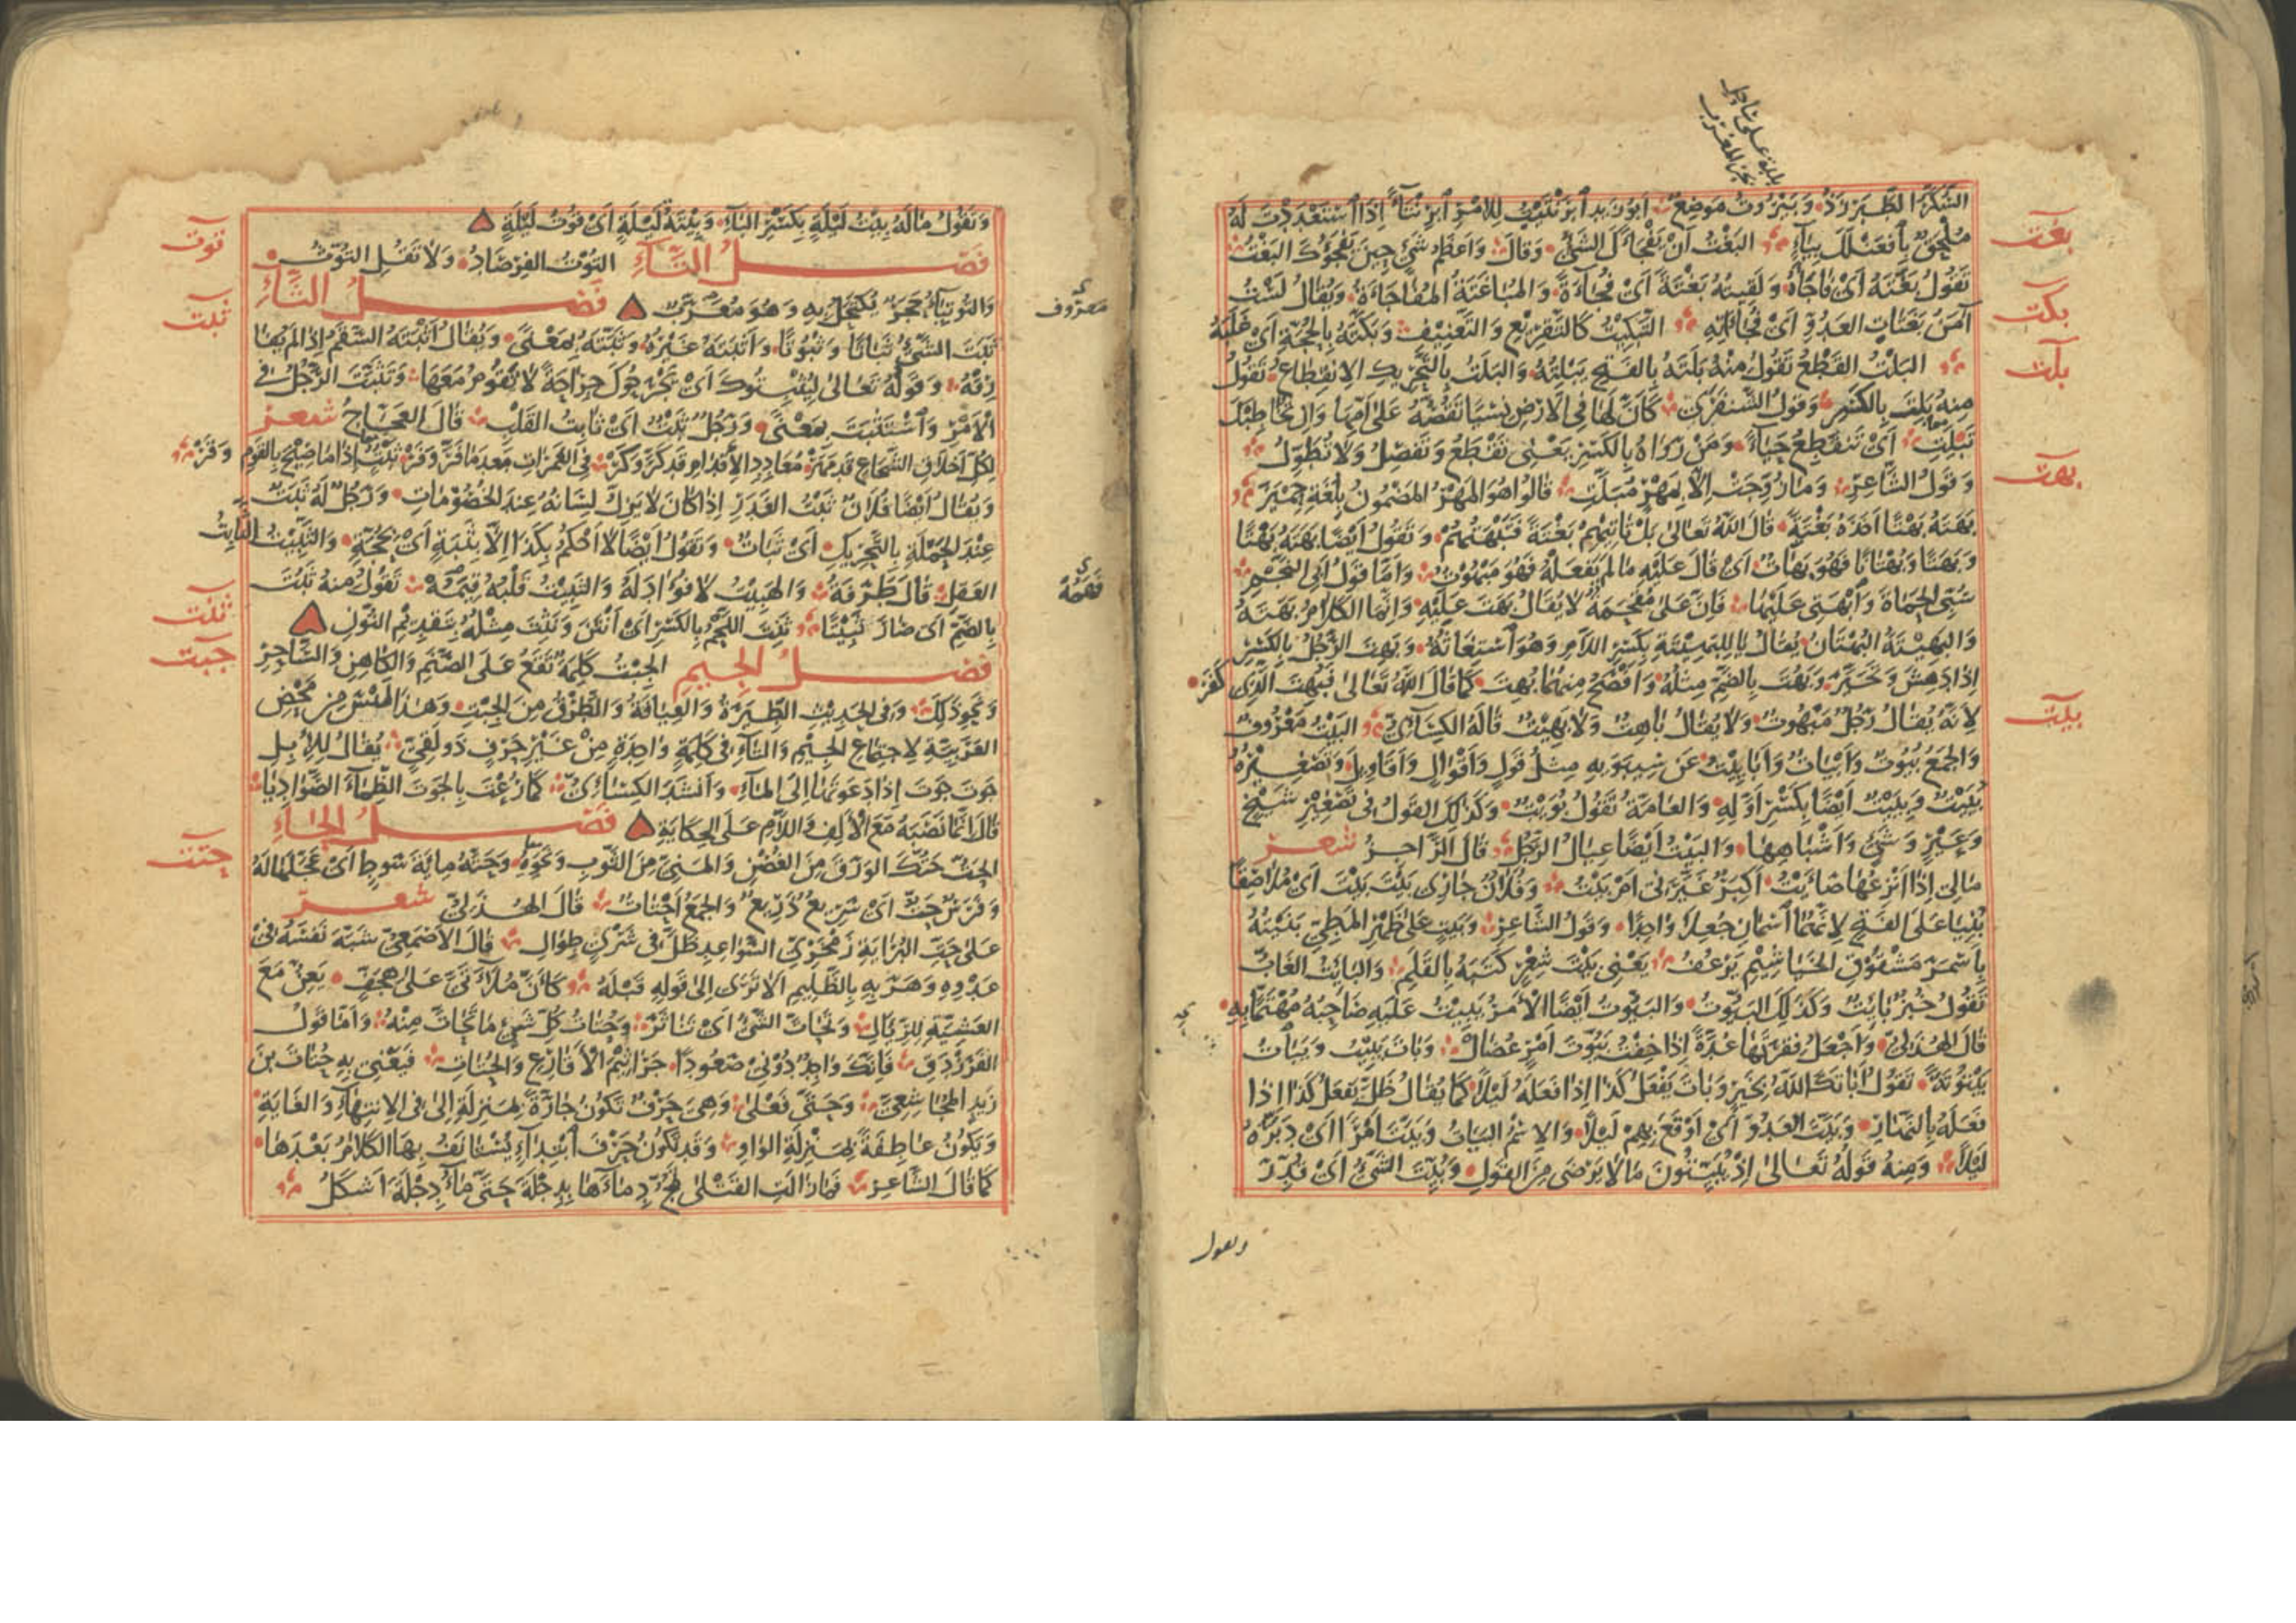 بلدة على ساحل
بحر المغرب
السُّكَّرُ الطَّبَرْزَذُ وَبَيْرُوتُ مَوضِعٌ أبو زيد ابْرَنْتَيْتُ لِلأَمْرِ ابْرِنْتَاءً إِذَا اسْتَعْدَدْتَ لَهُ
مُلْحَقٌ بِافْعَنْلَلَ بِيَاءٍ البَغْتُ أَنْ يَفْجَأَكَ الشَّيْءُ وَقَالَ وَأَعْظَمُ شَيْءٍ حِينَ يَفْجَؤُكَ البَغْتُ
بغت
تَقُولُ بَغَتَهُ أَيْ فَاجَأَهُ وَلَقِيتُهُ بَغْتَةً أَيْ فُجَاءَةً وَالمُبَاغَتَةُ المُفَاجَاءَةُ وَيُقَالُ لَسْتُ
آمَنُ بَغَتَاتِ العَدُوِّ أَيْ فُجَاآتِهِ التَّبْكِيتُ كَالتَّقْرِيعِ وَالتَّعْنِيفِ وَبَكَّتَهُ بِالحُجَّةِ أَيْ غَلَبَهُ
بكت
البَلْتُ القَطْعُ تَقُولُ مِنْهُ بَلَتَهُ بِالفَتْحِ يَبْلِتُهُ وَالبَلَتُ بِالتَّحْرِيكِ الاِنْقِطَاعُ تَقُولُ
بلت
مِنْهُ بَلِتَ بِالكَسْرِ وَقَوْلُ الشَّنْفَرَى كَأَنَّ لَهَا فِي الأَرْضِ نِسْيًا تَقُصُّهُ عَلَى أَمِّهَا وَإِنْ تُخَاطِبْكَ
تَبْلِتِ أَيْ تَنْقَطِعُ حَيَاءً وَمَنْ رَوَاهُ بِالكَسْرِ يَعْنِي تَقْطَعُ وَتَفْصِلُ وَلَا تُطَوِّلُ
وَقَوْلُ الشَّاعِرِ وَمَا زُوِّجَتْ إِلَّا بِمَهْرٍ مُبَلَّتِ قَالُوا هُوَ المَهْرُ المَضْمُونُ بِلُغَةِ حِمْيَرَ
بهت
بَهَتَهُ بَهْتًا أَخَذَهُ بَغْتَةً قَالَ اللَّهُ تَعَالَى بَلْ تَأْتِيهِمْ بَغْتَةً فَتَبْهَتُهُمْ وَتَقُولُ أَيْضًا بَهَتَهُ بَهْتًا
وَبَهَتًا وَبُهْتَانًا فَهُوَ بَهَّاتٌ أَيْ قَالَ عَلَيْهِ مَا لَمْ يَفْعَلْهُ فَهُوَ مَبْهُوتٌ وَأَمَّا قَوْلُ أَبِي النَّجْمِ
سُبِّي الحَمَاةَ وَابْهَتِي عَلَيْهَا فَإِنَّ عَلَى مُقْحَمَةٌ لَا يُقَالُ بَهَتَ عَلَيْهِ وَإِنَّمَا الكَلَامُ بَهَتَهُ
وَالبَهِيتَةُ البُهْتَانُ يُقَالُ يَا لِلبَهِيتَةِ بِكَسْرِ اللَّامِ وَهُوَ اسْتِغَاثَةٌ وَبَهِتَ الرَّجُلُ بِالكَسْرِ
إِذَا دَهِشَ وَتَحَيَّرَ وَبَهُتَ بِالضَّمِّ مِثْلُهُ وَأَفْصَحُ مِنْهُمَا بُهِتَ كَمَا قَالَ اللَّهُ تَعَالَى فَبُهِتَ الَّذِي كَفَرَ
لِأَنَّهُ يُقَالُ رَجُلٌ مَبْهُوتٌ وَلَا يُقَالُ بَاهِتٌ وَلَا بَهِيتٌ قَالَهُ الكِسَائِيُّ البَيْتُ مَعْرُوفٌ
بيت
وَالجَمْعُ بُيُوتٌ وَأَبْيَاتٌ وَأَبَايِيتُ عَنْ سِيبَوَيْهِ مِثْلُ قَوْلٍ وَأَقْوَالٍ وَأَقَاوِيلَ وَتَصْغِيرُهُ
بُيَيْتٌ وَبِيَيْتٌ أَيْضًا بِكَسْرِ أَوَّلِهِ وَالعَامَّةُ تَقُولُ بُوَيْتٌ وَكَذَلِكَ القَوْلُ فِي تَصْغِيرِ شَيْخٍ
وَعَيْرٍ وَشَيْءٍ وَأَشْبَاهِهَا وَالبَيْتُ أَيْضًا عِيَالُ الرَّجُلِ قَالَ الرَّاجِزُ شعر
مَالِي إِذَا أَنْزِعُهَا صَأَيْتُ أَكِبَرٌ غَيَّرَنِي أَمْ بَيْتُ وَفُلَانٌ جَارِي بَيْتَ بَيْتَ أَيْ مُلَاصِقًا
بُنِيَا عَلَى الفَتْحِ لِأَنَّهُمَا اسْمَانِ جُعِلَا وَاحِدًا وَقَوْلُ الشَّاعِرِ وَبَيْتٍ عَلَى ظَهْرِ المَطِيِّ بَنَيْتُهُ
بِأَسْمَرَ مَشْقُوقِ الخَيَاشِيمِ يَرْعُفُ يَعْنِي بَيْتَ شِعْرٍ كَتَبَهُ بِالقَلَمِ وَالبَائِتُ الغَابُّ
تَقُولُ خُبْزٌ بَائِتٌ وَكَذَلِكَ البَيُّوتُ وَالبَيُّوتُ أَيْضًا الأَمْرُ يَبِيتُ عَلَيْهِ صَاحِبُهُ مُهْتَمًّا بِهِ
قَالَ الهُذَلِيُّ وَأَجْعَلُ فِقْرَتَهَا عُدَّةً إِذَا خِفْتُ بَيُّوتَ أَمْرٍ عُضَالِ وَبَاتَ يَبِيتُ وَيَبَاتُ
بَيْتُوتَةً تَقُولُ أَبَاتَكَ اللَّهُ بِخَيْرٍ وَبَاتَ يَفْعَلُ كَذَا إِذَا فَعَلَهُ لَيْلًا كَمَا يُقَالُ ظَلَّ يَفْعَلُ كَذَا إِذَا
فَعَلَهُ بِالنَّهَارِ وَبَيَّتَ العَدُوَّ أَيْ أَوْقَعَ بِهِمْ لَيْلًا وَالاِسْمُ البَيَاتُ وَبَيَّتَ أَمْرًا أَيْ دَبَّرَهُ
لَيْلًا وَمِنْهُ قَوْلُهُ تَعَالَى إِذْ يُبَيِّتُونَ مَا لَا يَرْضَى مِنَ القَوْلِ وَبُيِّتَ الشَّيْءُ أَيْ قُدِّرَ
وتقول
وَتَقُولُ مَا لَهُ بِيتُ لَيْلَةٍ بِكَسْرِ البَاءِ وَبِيتَةُ لَيْلَةٍ أَيْ قُوتُ لَيْلَةٍ
فصل التاء التُّوتُ الفِرْصَادُ وَلَا تَقُلِ التُّوثُ
توت
وَالتُّوتِيَاءُ حَجَرٌ يُكْتَحَلُ بِهِ وَهُوَ مُعَرَّبٌ فصل الثاء
معروف
ثَبَتَ الشَّيْءُ ثَبَاتًا وَثُبُوتًا وَأَثْبَتَهُ غَيْرُهُ وَثَبَّتَهُ بِمَعْنًى وَيُقَالُ أَثْبَتَهُ السُّقْمُ إِذَا لَمْ يُفَا
ثبت
رِقْهُ وَقَوْلُهُ تَعَالَى لِيُثْبِتُوكَ أَيْ يَجْرَحُوكَ جِرَاحَةً لَا تَقُومُ مَعَهَا وَتَثَبَّتَ الرَّجُلُ فِي
الأَمْرِ وَاسْتَثْبَتَ بِمَعْنًى وَرَجُلٌ ثَبْتٌ أَيْ ثَابِتُ القَلْبِ قَالَ العَجَّاجُ شعر
لِكُلِّ أَخْلَاقِ الشُّجَاعِ قَدْ مَهَرْ مُعَاوِدَ الإِقْدَامِ قَدْ كَرَّ وَكَرّْ فِي الغَمَرَاتِ بَعْدَمَا فَرَّ وَفَرّْ ثَبْتٌ إِذَا مَا صِيحَ بِالقَوْمِ وَقَرْ
وَيُقَالُ أَيْضًا فُلَانٌ ثَبْتُ الغَدَرِ إِذَا كَانَ لَا يَزِلُّ لِسَانُهُ عِنْدَ الخُصُومَاتِ وَرَجُلٌ لَهُ ثَبَتٌ
عِنْدَ الحَمْلَةِ بِالتَّحْرِيكِ أَيْ ثَبَاتٌ وَتَقُولُ أَيْضًا لَا أَحْكُمُ بِكَذَا إِلَّا بِثَبَتٍ أَيْ بِحُجَّةٍ وَالثَّبِيتُ الثَّابِتُ
العَقْلِ قَالَ طَرَفَةُ وَالهَبِيتُ لَا فُؤَادَ لَهُ وَالثَّبِيتُ قَلْبُهُ قِيَمُهْ تَقُولُ مِنْهُ ثَبُتَ
بِالضَّمِّ أَيْ صَارَ ثَبِيتًا ثَنِتَ اللَّحْمُ بِالكَسْرِ أَيْ أَنْتَنَ وَنَثِتَ مِثْلُهُ بِتَقْدِيمِ النُّونِ
ثنت
فصل الجيم الجِبْتُ كَلِمَةٌ تَقَعُ عَلَى الصَّنَمِ وَالكَاهِنِ وَالسَّاحِرِ
جبت
وَنَحْوِ ذَلِكَ وَفِي الحَدِيثِ الطِّيَرَةُ وَالعِيَافَةُ وَالطَّرْقُ مِنَ الجِبْتِ وَهَذَا لَيْسَ مِنْ مَحْضِ
العَرَبِيَّةِ لِاجْتِمَاعِ الجِيمِ وَالتَّاءِ فِي كَلِمَةٍ وَاحِدَةٍ مِنْ غَيْرِ حَرْفٍ ذَوْلَقِيٍّ يُقَالُ لِلإِبِلِ
جَوْتَ جَوْتَ إِذَا دَعَوْتَهَا إِلَى المَاءِ وَأَنْشَدَ الكِسَائِيُّ كَمَا رُعْتَ بِالجَوْتَ الظِّمَاءَ الصَّوَادِيَا
قَالَ إِنَّمَا نَصَبَهُ مَعَ الأَلِفِ وَاللَّامِ عَلَى الحِكَايَةِ فصل الحاء
الحَتُّ حَتُّكَ الوَرَقَ مِنَ الغُصْنِ وَالمَنِيَّ مِنَ الثَّوْبِ وَنَحْوِهِ وَحَتَّهُ مِائَةَ سَوْطٍ أَيْ عَجَّلَهَا لَهُ
حتت
وَفَرَسٌ حَتٌّ أَيْ سَرِيعٌ ذَرِيعٌ وَالجَمْعُ أَحْتَاتٌ قَالَ الهُذَلِيُّ شعر
عَلَى حَتِّ البُرَايَةِ زَمْخَرِيِّ السَّوَاعِدِ ظَلَّ فِي شَرْيٍ طِوَالِ قَالَ الأَصْمَعِيُّ شَبَّهَ نَفْسَهُ فِي
عَدْوِهِ وَهَرَبِهِ بِالظَّلِيمِ أَلَا تَرَى إِلَى قَوْلِهِ قَبْلَهُ كَأَنَّ مُلَاءَتَيَّ عَلَى هِجَفٍّ يَعِنُّ مَعَ
العَشِيَّةِ لِلرِّئَالِ وَتَحَاتَّ الشَّيْءُ أَيْ تَنَاثَرَ وَحُتَاتُ كُلِّ شَيْءٍ مَا تَحَاتَّ مِنْهُ وَأَمَّا قَوْلُ
الفَرَزْدَقِ فَإِنَّكَ وَاجِدٌ دُونِي صَعُودًا جَرَاثِيمَ الأَقَارِعِ وَالحُتَاتِ فَيَعْنِي بِهِ حُتَاتَ بْنَ
زَيْدٍ المُجَاشِعِيَّ وَحَتَّى فَعْلَى وَهِيَ حَرْفٌ تَكُونُ جَارَّةً بِمَنْزِلَةِ إِلَى فِي الاِنْتِهَاءِ وَالغَايَةِ
وَيَكُونُ عَاطِفَةً بِمَنْزِلَةِ الوَاوِ وَقَدْ تَكُونُ حَرْفَ ابْتِدَاءٍ يُسْتَأْنَفُ بِهَا الكَلَامُ بَعْدَهَا
كَمَا قَالَ الشَّاعِرُ فَمَا زَالَتِ القَتْلَى تَمُجُّ دِمَاءَهَا بِدِجْلَةَ حَتَّى مَاءُ دِجْلَةَ أَشْكَلُ